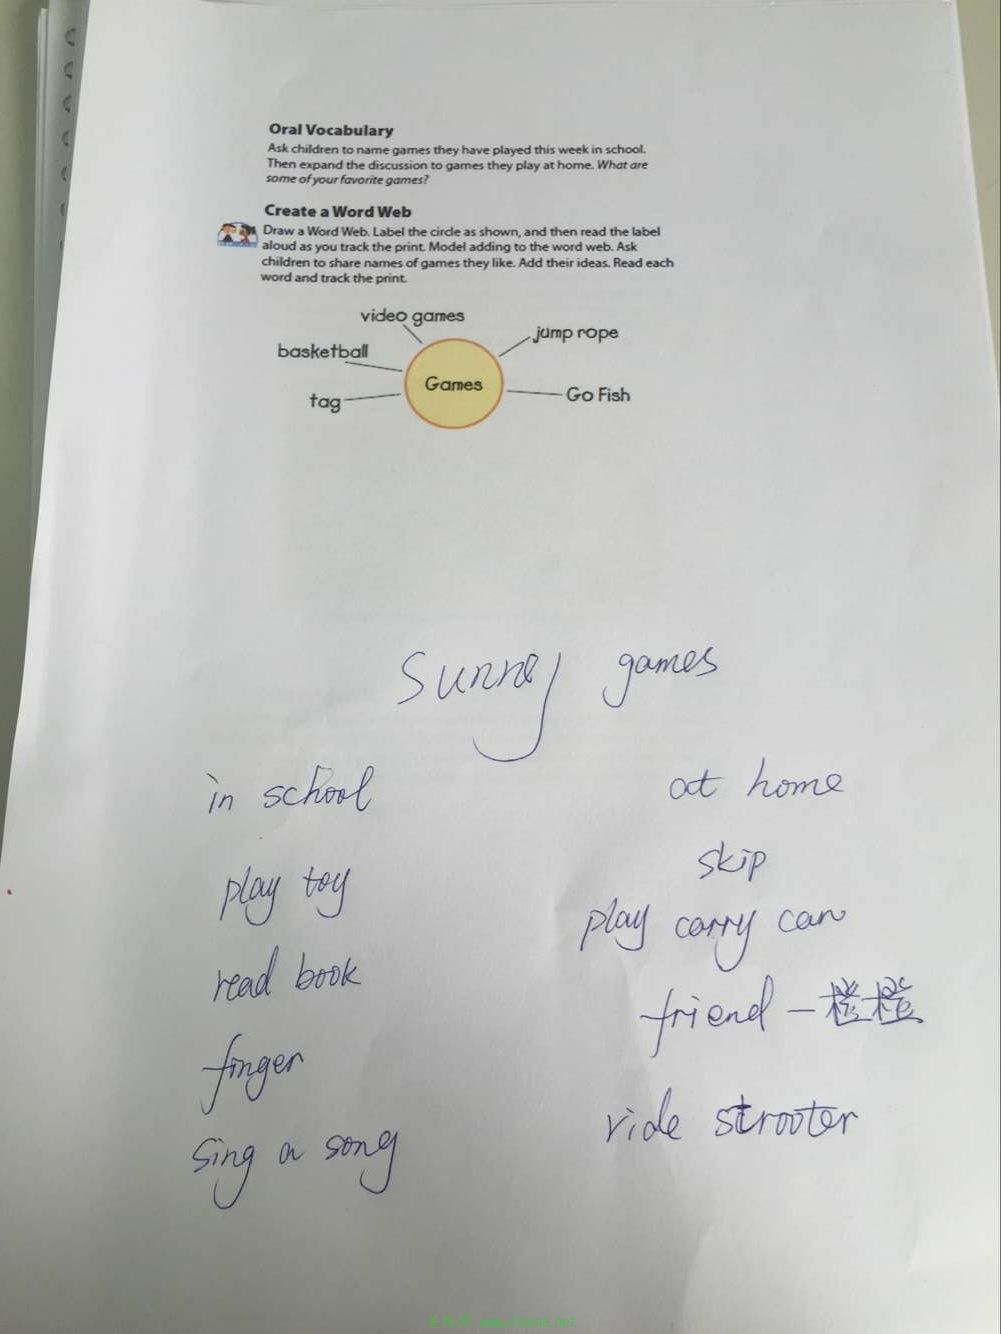 Oral Vocabulary
Ask children to name games they have played this week in school.
Then expand the discussion to games they play at home. What are
some of your favorite games?
Create a Word Web
Draw a Word Web. Label the circle as shown, and then read the label
aloud as you track the print. Model adding to the word web. Ask
children to share names of games they like. Add their ideas. Read each
word and track the print.
video games
jump rope
basketball
Games
tag
Go Fish
Sunney games
in school
at home
play toy
skip
play carry can
read book
friend - 橙橙
finger
ride strooter
sing a song